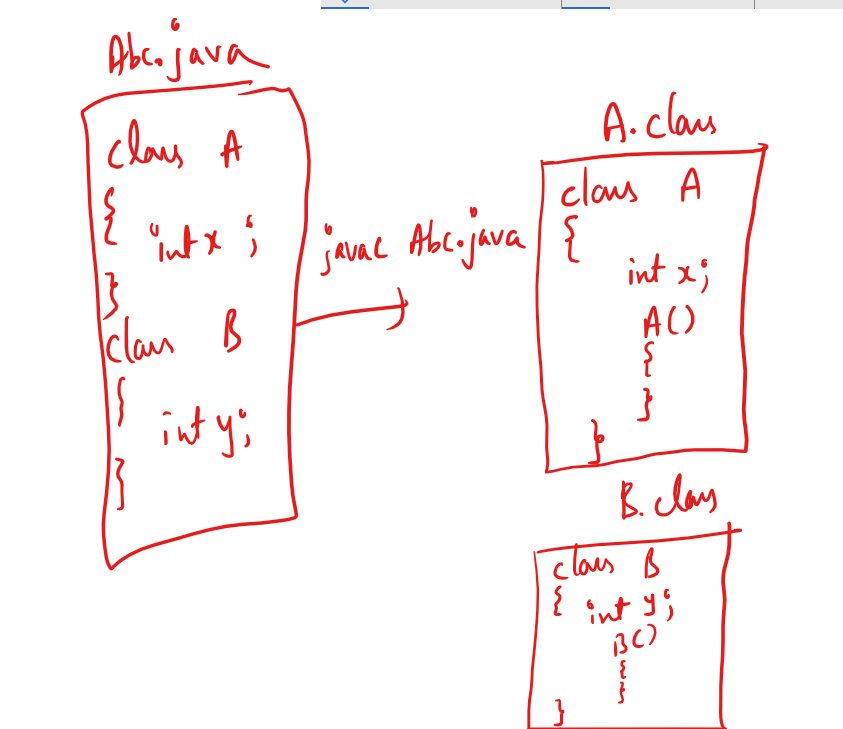 Abc.java
class A
{
int x ;
}
class B
{
int y;
}
javac Abc.java
A.class
class A
{
int x;
A()
{
}
}
B.class
class B
{ int y;
B()
{
}
}